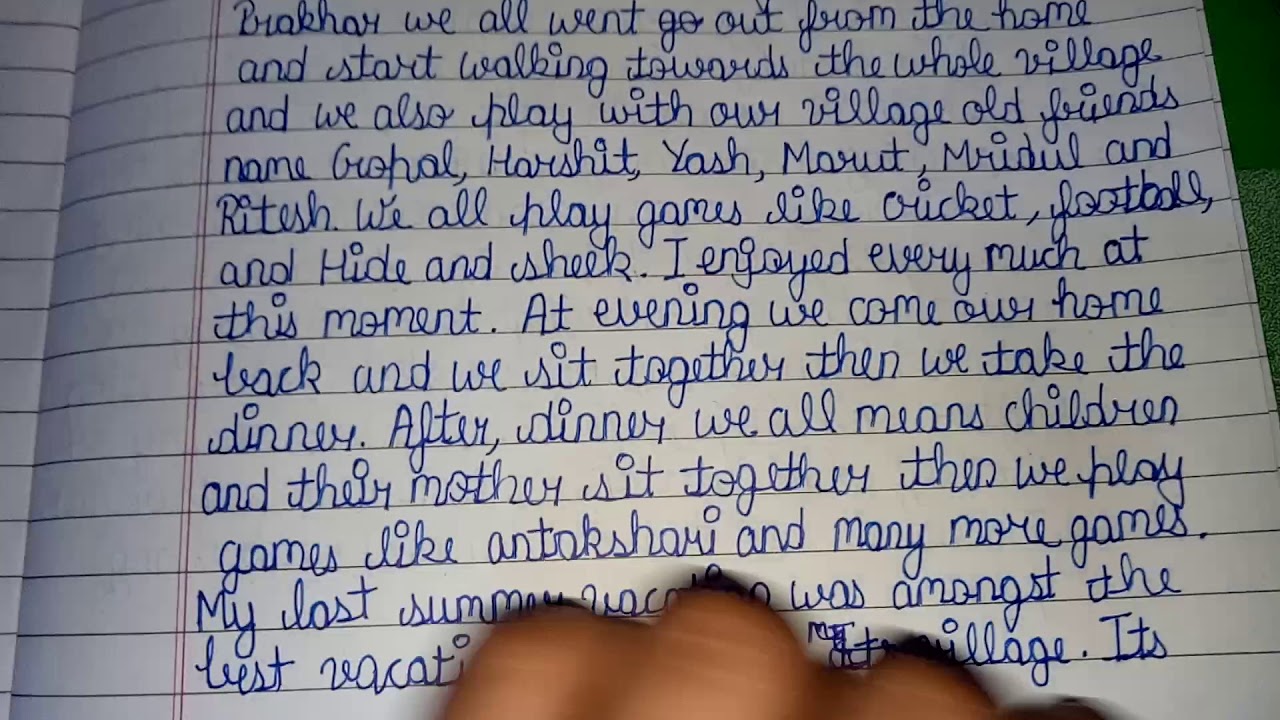 Prakhar we all went go out from the home
and start walking towards the whole village
and we also play with our village old friends
name Gopal, Harshit, Yash, Marut, Mridul and
Ritesh. We all play games like cricket, football,
and Hide and sheek. I enjoyed every much at
this moment. At evening we come our home
back and we sit together then we take the
dinner. After, dinner we all means children
and their mother sit together then we play
games like antakshari and many more games.
My last summer was amongst the
best village. Its